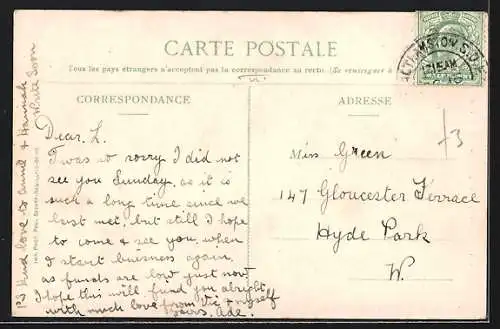 CARTE POSTALE
Tous les pays étrangers n'acceptent pas la correspondance au recto. (Se renseigner à
CORRESPONDANCE
Dear L.
I was so sorry I did not
see you Sunday, as it is
such a long time since we
last met, but still I hope
to come & see you, when
I start buisness again,
as funds are low just now
I hope this will find you alright
with much love from Vic & myself
Yours, Ade.
PS Kind love to Annie & Hannah
Write Soon
ADRESSE
Miss Green
147 Gloucester Terrace
Hyde Park
W.
THAMSTOW S.O.
15AM
+3